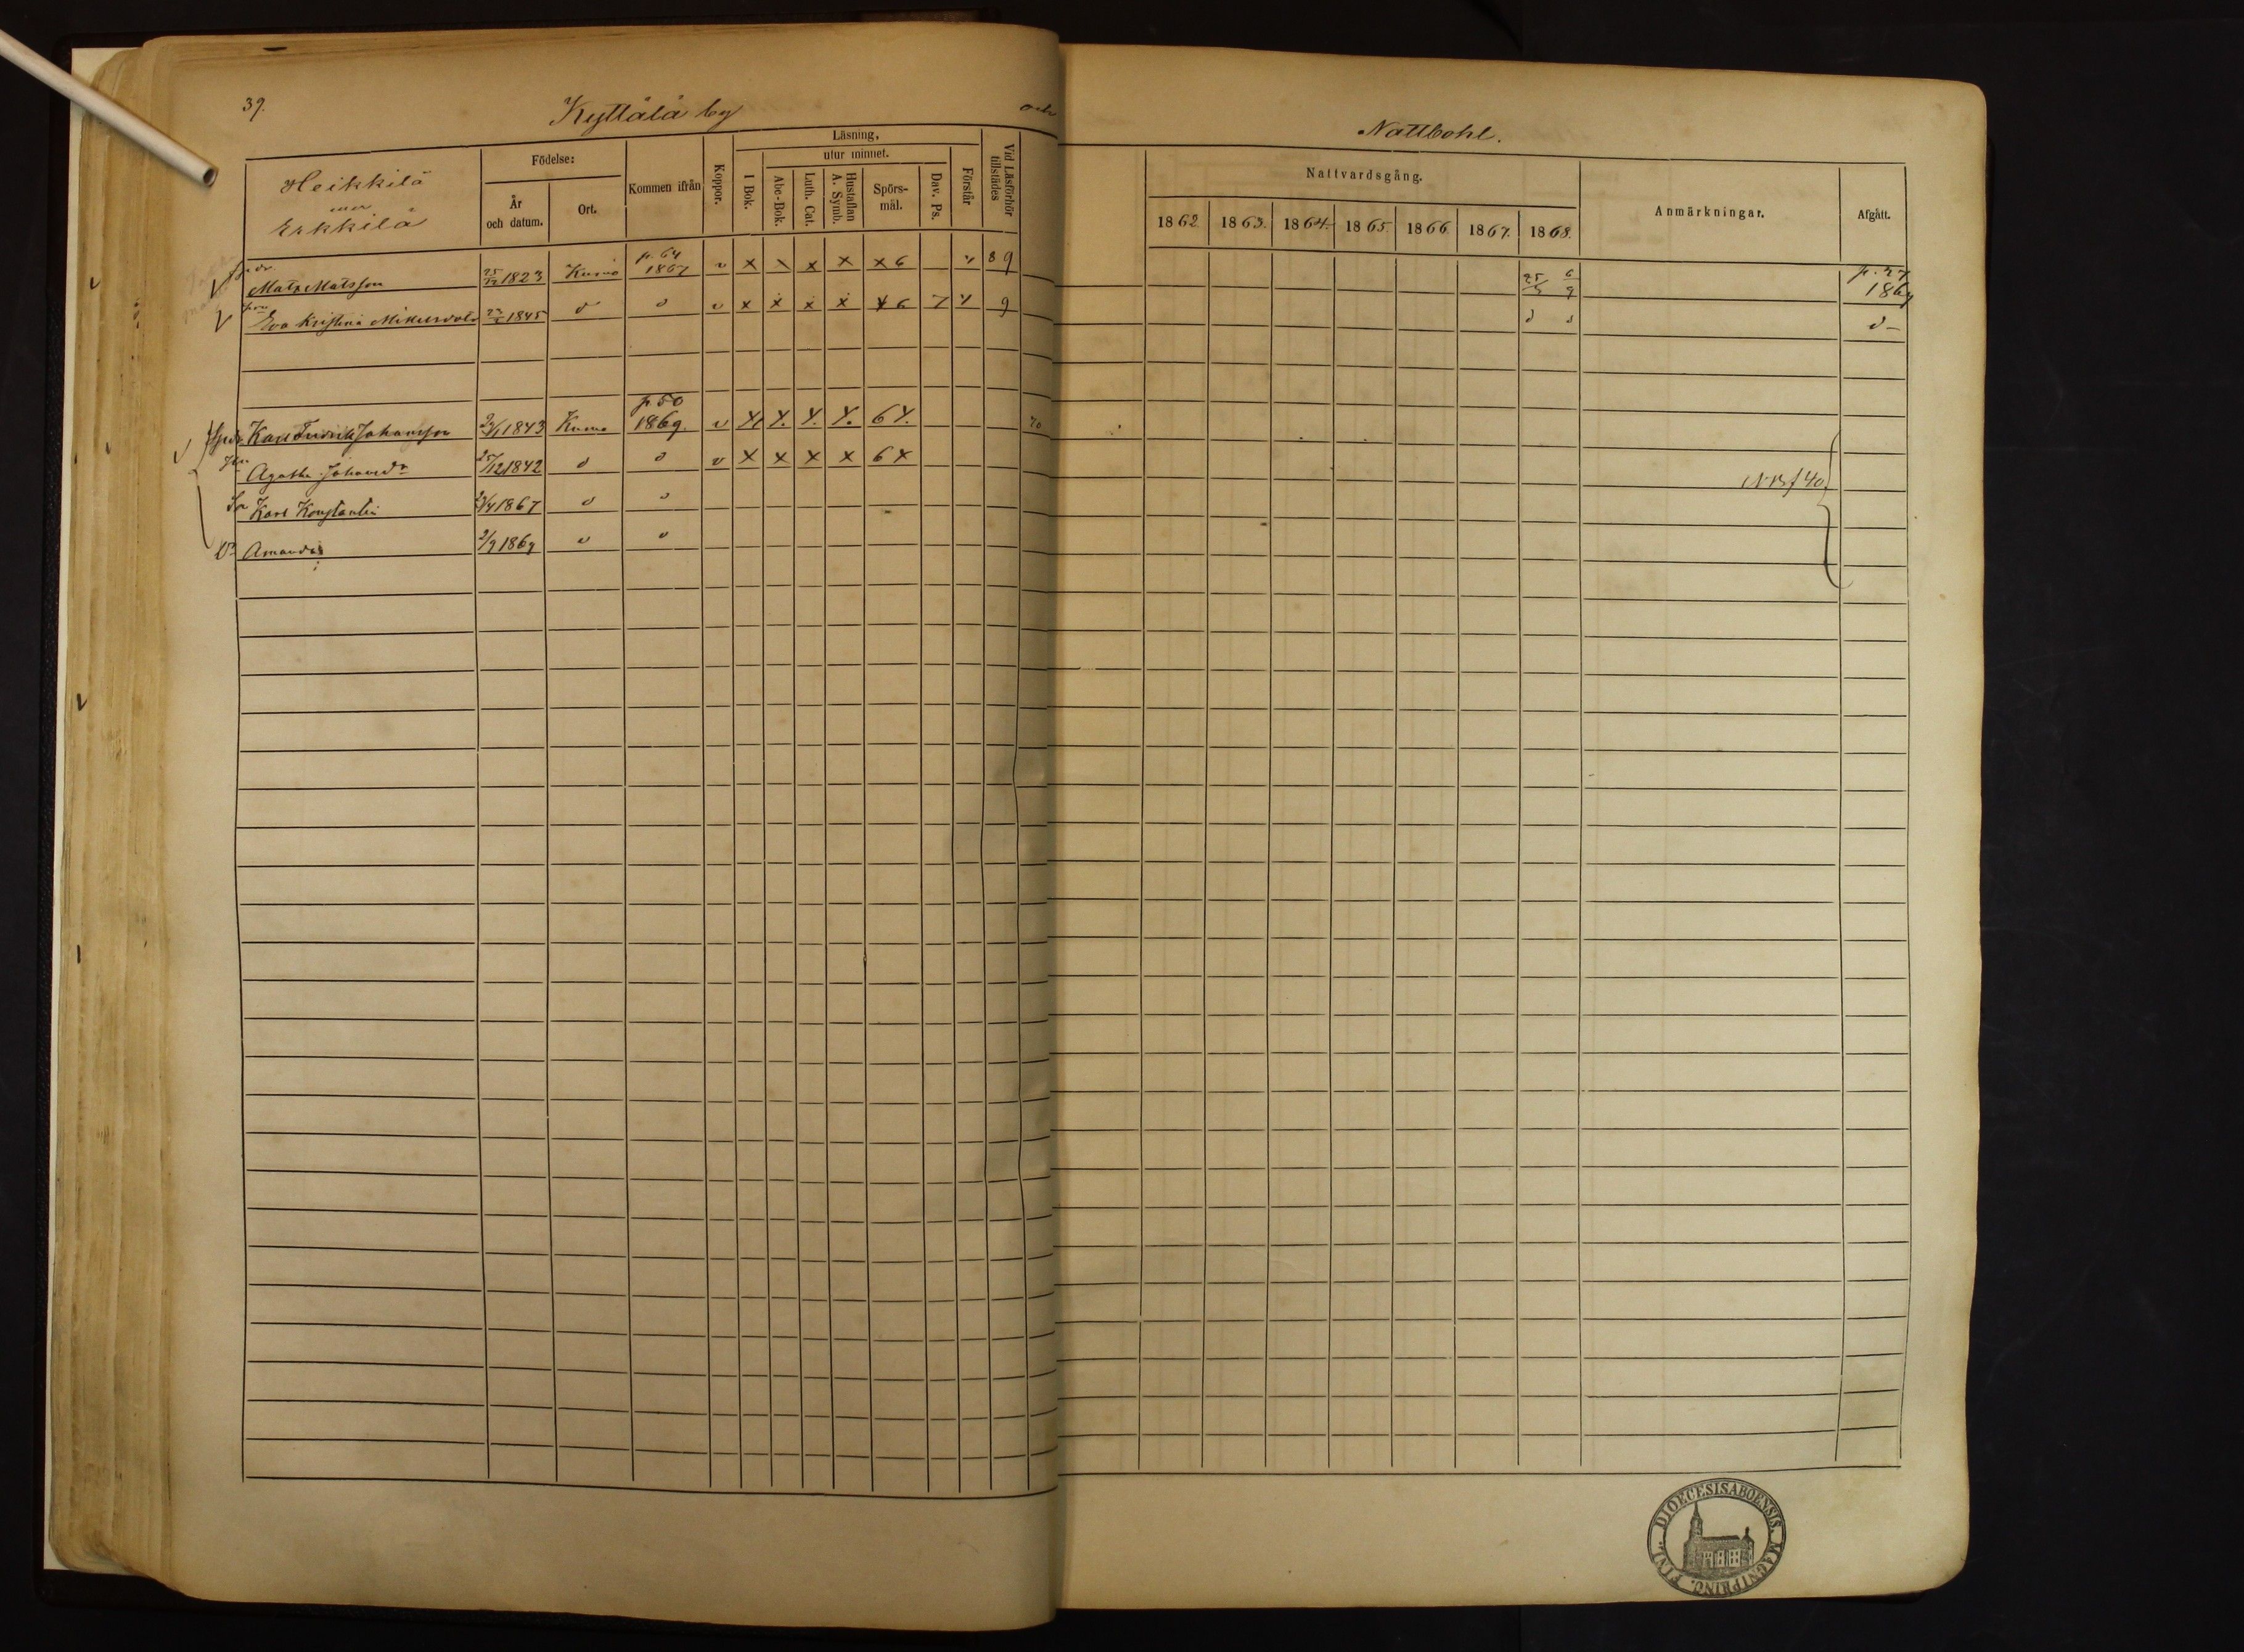 39.
Kyttälä by och Nattbohl.
Heikkilä
Erkkilä
Födelse:
År och datum.
Ort.
Kommen ifrån
Koppor.
Läsning,
I Bok.
utur minnet.
Abc-Bok.
Luth. Cat.
Hustaflan A. Symb.
Spörsmål.
Dav. Ps.
Förstår
Vid Läsförhör tillstädes
Nattvardsgång.
1862. 1863. 1864. 1865. 1866. 1867. 1868.
Anmärkningar.
Afgått.
Mats Matsson 25/12 1823 Kumo p. 64 1867 v x x x x x 6 8 9 p. 27 1869
Eva Kristina 1845 d d v x x x x x 6 7 9 d d d
Karl Fredrik Johansson 1843 Kumo p. 50 1869. v 6 70
Agatha Johansdr 25/12 1842 d d v x x x x 6 x
Karl Konstantin 1867 d d
Dr Amanda 2/9 1869 d d
DIOECESIS ABOENSIS. MAGNI PRINC. FINL.